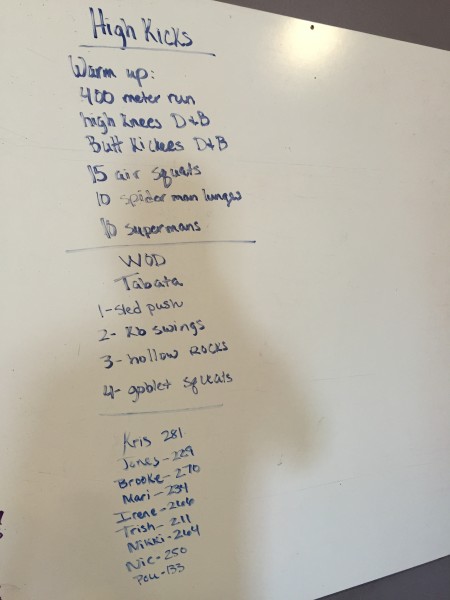 High Kicks
Warm up:
400 meter run
high knees D+B
Butt Kickees D+B
15 air squats
10 spider man lunges
10 supermans
WOD
Tabata
1-sled push
2- Kb swings
3- hollow ROCKS
4- goblet squats
Kris 281
Jones-229
Brooke-270
Mari-234
Irene-266
Trish-211
Nikki-264
Nic-250
-133